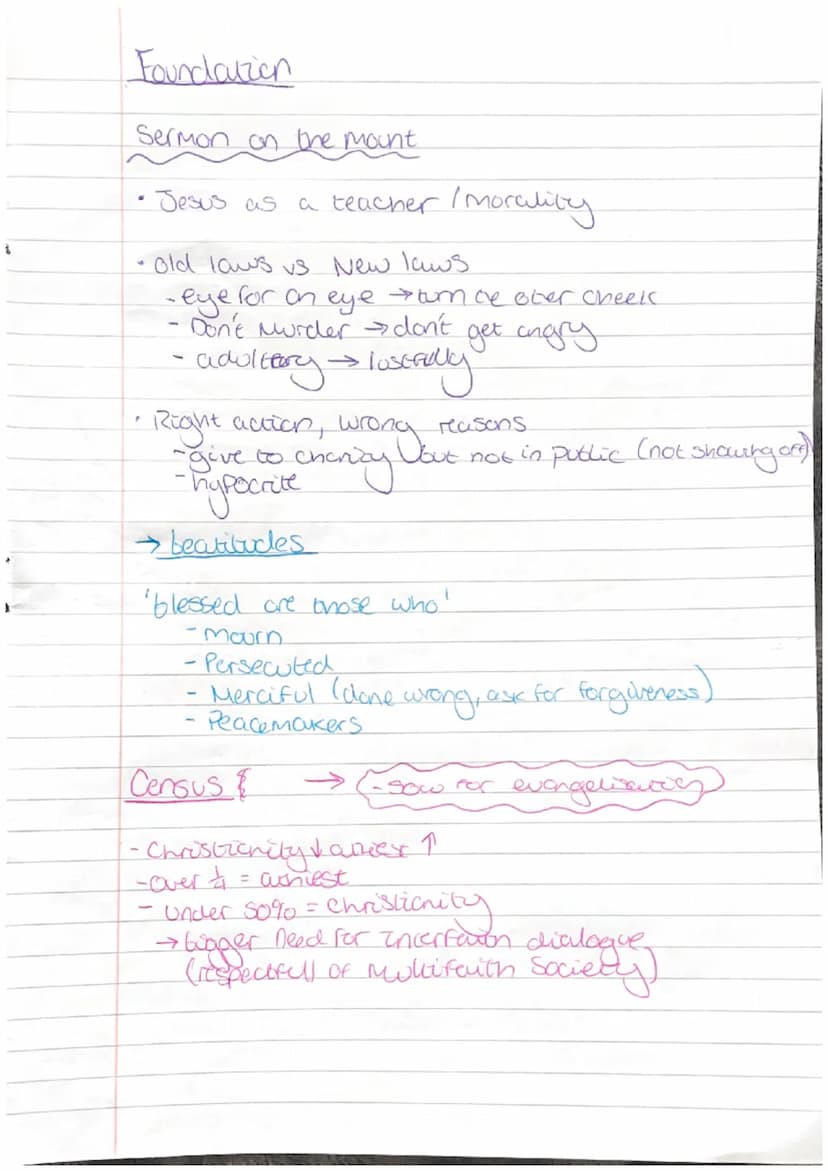 Foundation
Sermon on the mount
• Jesus as a teacher / morality
• Old laws vs New laws
- eye for an eye → turn the other cheek
- Don't Murder → don't get angry
- → lustfully
• Right action, wrong reasons
- give to charity but not in public (not showing off)
- hypocrite
→ beatitudes
'blessed are those who'
- mourn
- Persecuted
- Merciful (done wrong, ask for forgiveness)
- Peacemakers
Census → - for evangelisation
- Christianity ↓ ↑
- over 1/4 =
- under 50% = Christianity
→ bigger need for interfaith dialogue
(respectfull of Multifaith Society)